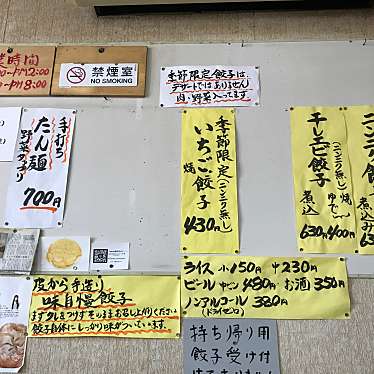 業時間
PM2:00
PM8:00
禁煙室
NO SMOKING
季節限定餃子は、
デザートではありません
肉・野菜入ってます。
手打ち
たん麺
野菜タップリ
700円
季節限定(ニンニク無し)
いちご餃子
焼 430円
干しエビ餃子
(ニンニク無し)
焼 ゆで
400円
煮込
630円
ニンニク餃
煮込み
皮から手造り
味自慢餃子
まずタレをつけずそのままお召し上りください
餃子自体にしっかり味がついています。
ライス 小150円 中230円
ビール 中ビン 480円 お酒 350円
ノンアルコール 320円
(ドライゼロ)
持ち帰り用
餃子受け付